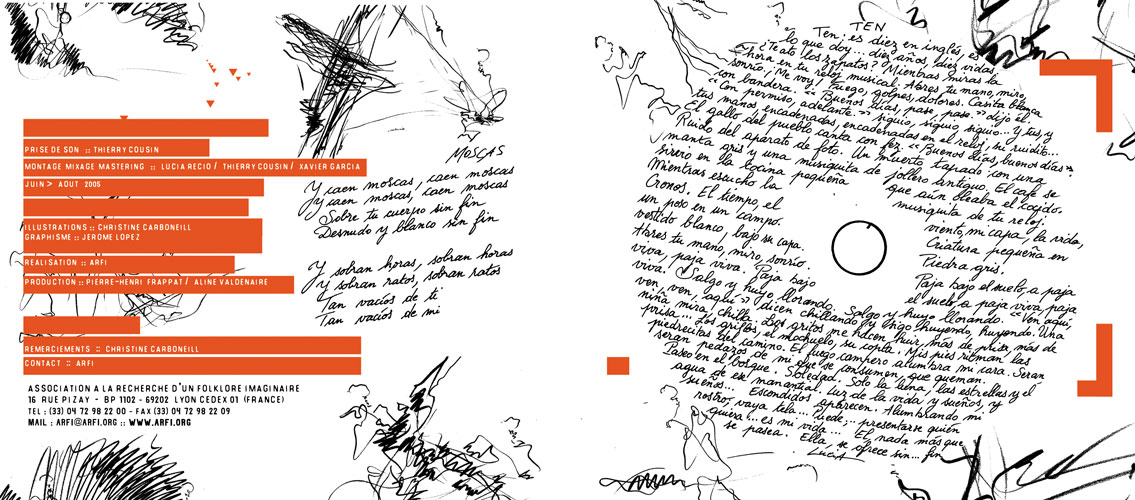 PRISE DE SON :: THIERRY COUSIN
MONTAGE MIXAGE MASTERING :: LUCIA RECIO / THIERRY COUSIN / XAVIER GARCIA
JUIN > AOUT 2005
ILLUSTRATIONS :: CHRISTINE CARBONEILL
GRAPHISME :: JEROME LOPEZ
REALISATION :: ARFI
PRODUCTION :: PIERRE-HENRI FRAPPAT / ALINE VALDENAIRE
REMERCIEMENTS :: CHRISTINE CARBONEILL
CONTACT :: ARFI
ASSOCIATION A LA RECHERCHE D'UN FOLKLORE IMAGINAIRE
16 RUE PIZAY - BP 1102 - 69202 LYON CEDEX 01 (FRANCE)
TEL : (33) 04 72 98 22 00 - FAX (33) 04 72 98 22 09
MAIL : ARFI@ARFI.ORG :: WWW.ARFI.ORG
MOSCAS
Y caen moscas, caen moscas
Y caen moscas, caen moscas
Sobre tu cuerpo sin fin
Desnudo y blanco sin fin
Y sobran horas, sobran horas
Y sobran ratos, sobran ratos
Tan vacíos de ti
Tan vacíos de mi
TEN
Ten; es diez en inglés, es
lo que doy... diez años, diez vidas
¿Te ato los zapatos? Mientras miras la
hora en tu reloj musical; Abres tu mano, miro,
sonrío ¡Me voy! Fuego, golpes, dolores. Casita blanca
con bandera. "Buenos días, pase, pase." dijo él.
"Con permiso, adelante." siguio, siguio, siguio... Y tus, y
tus manos encadenadas, encadenadas en el reloj, su ruidito...
El gallo del pueblo canta con fez "Buenos días, buenos días".
Ruido del aparato de foto. Un muerto tapado con una
manta gris y una musiguita de folloro antiguo. El cafe se
sirero en la cocina pequeña que aún oleaba el cogido.
Mientras escucho la musiguita de tu reloj.
Cronos. El tiempo, el viento, mi capa, la vida,
un poso en un campo. Criatura pequeña en
vestido blanco, bajo su capa. Piedra gris.
Abres tu mano, miro, sonrío. Paja bajo el suelo, a paja
viva, paja viva. Paja bajo el suelo, a paja viva, paja
viva. ¡Salgo y huyo llorando. Salgo y huyo llorando. "Ven aquí,
ven, ven, aquí" ¡dicen chillando! y sigo huyendo, huyendo. Una
niña mira, chilla. Los gritos me hacen huir, más de prisa, más de
prisa... Los grifos el mochuelo, su canto. Mis pies ritman las
piedrecitas del camino. El fuego campero alumbra mi cara. Serán
seran pedazos de mi que se consumen, que queman.
Paseo en el bosque. Soledad. Solo la luna, las estrellas y el
agua de ese manantial. Luz de la vida y sueños, y
sueños... Escondidos aparecen. Alumbrando mi
rostro, vaya tela... Puede,... presentarse quién
quiera... es mi vida... El nada más que
se pasea. Ella, se ofrece sin... fin
LUCIA